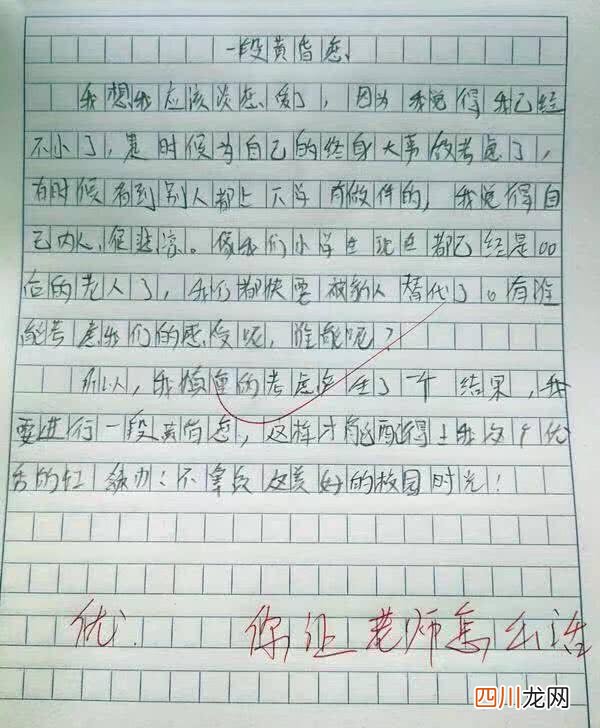 一段黄昏恋
我想我应该谈恋爱了，因为我觉得我已经
不小了，是时候为自己的终身大事做考虑了，
有时候看到别人都上下学有做伴的，我觉得自
己内人很悲凉。像我们小学生现在都已经是00
后的老人了，我们都快要被别人替代了。有谁
能考虑我们的感受呢，谁能呢？
所以，我慎重的考虑产生了一个结果，我
要进行一段黄昏恋，这样才能配得上我这个优
秀的红领巾！不辜负这美好的校园时光！
优 你让老师怎么活
四川龙网